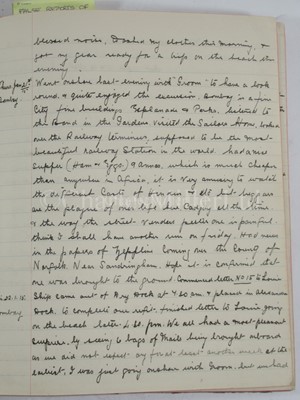 FALSE REPORTS OF
blessed noise. Washed my clothes this morning, &
got my gear ready for a trip on the beach this
evening.
Went ashore last evening with Groom to have a look
round & quite enjoyed the excursion, Bombay is a fine
City fine buildings Esplanade & Parks, listened to
the Band in the Gardens Visited the Sailors Home, looked
over the Railway terminus, supposed to be the most
beautiful railway Station in the world. had a nice
Supper (Ham & Eggs) & smoke, which is much cheaper
than anywhere in Africa, it is very amusing to watch
the different Casts of Hindus & all but beggars
are the plague of ones life and Cadging all the time.
& the way the street vendors pester one is painful.
think I shall have another run on friday. Had news
in the papers of Zeppelins Coming over the County of
Norfolk. Near Sandringham. Hope it is confirmed that
one was brought to the ground. Commenced letter No 15 to Louie
Ship came out of Dry Dock at 4.30 am & placed in Alexandra
Dock. to complete our refit. finished letter to Louie going
on the beach later. 6.30. pm. We all had a most pleasant
surprise, by seeing 6 bags of Mails being brought onboard
as we did not expect any for at least another week at the
earliest, I was just going onshore with Groom, but we had